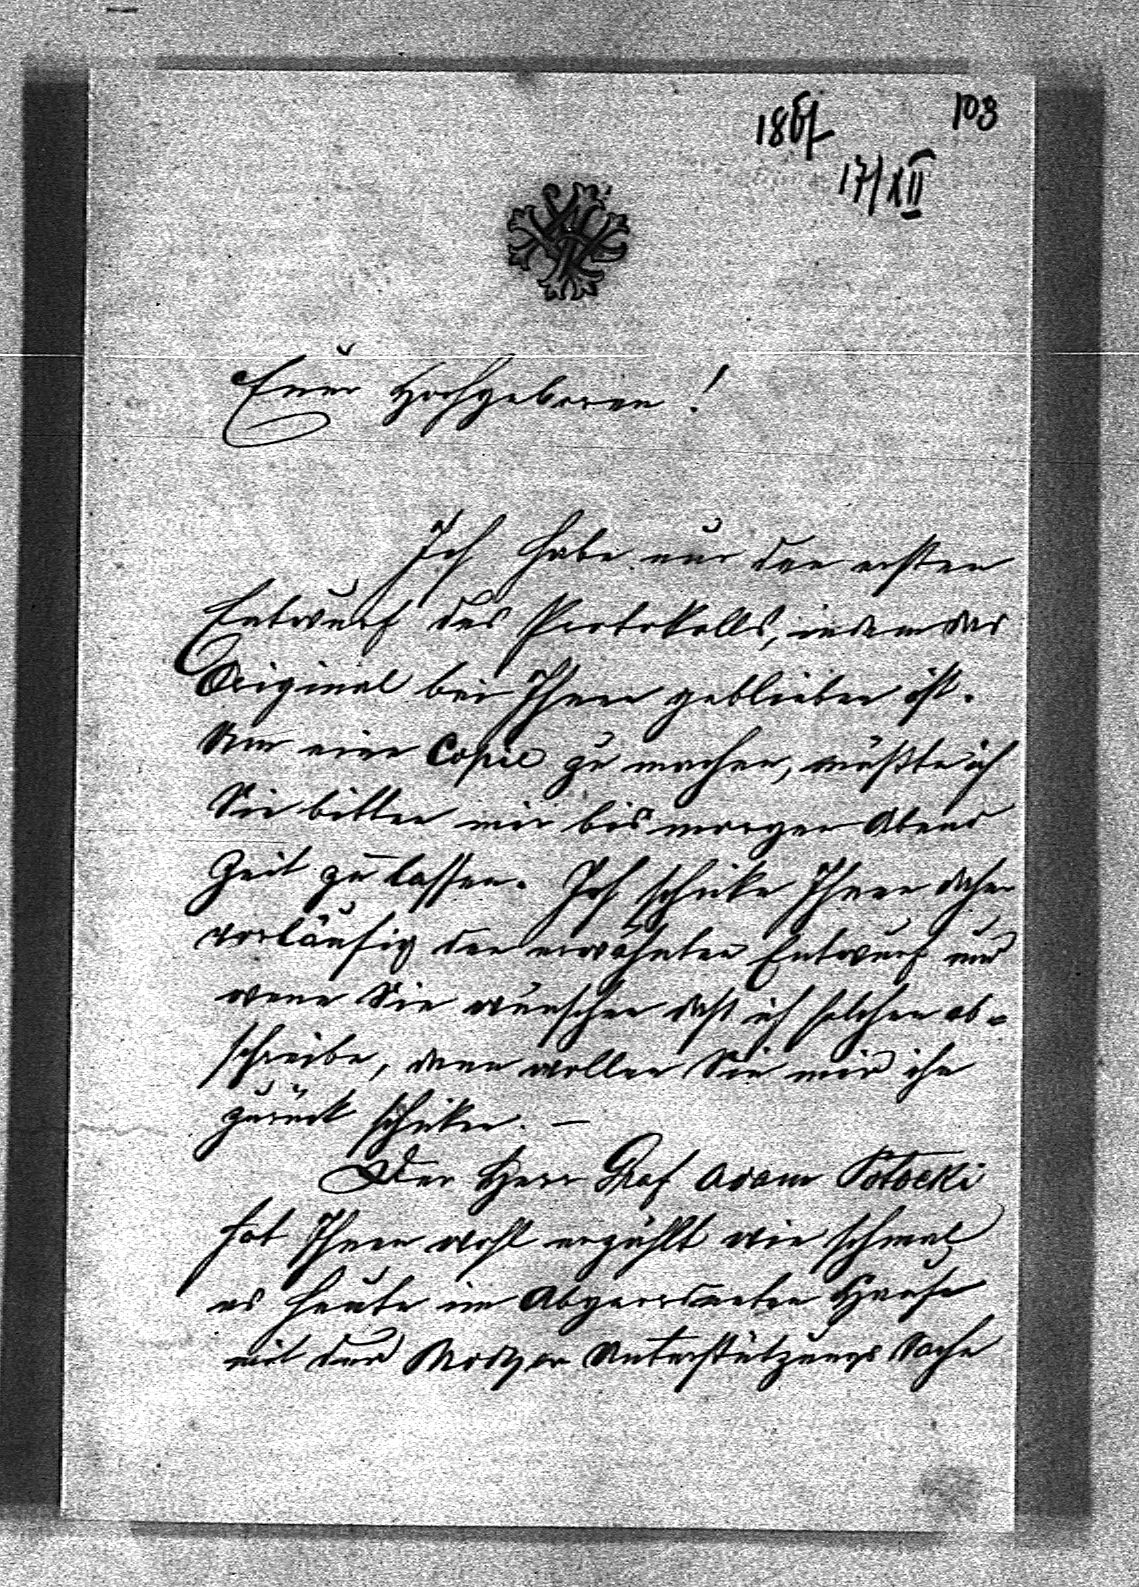 103
186
17/XII
Euer Hochgeboren!
Ich habe nur den ersten
Entwurf des Protokolls, indem das
Original bei Ihnen geblieben ist.
Um eine Copie zu machen, müßte ich
Sie bitten mir bis morgen Abend
Zeit zu lassen. Ich schicke Ihnen daher
vorläufig den erwähnten Entwurf und
wenn Sie wünschen daß ich solchen ab-
schreibe, dann wollen Sie mir ihn
zurück schicken. –
Der Herr Graf Adam Potocki
hat Ihnen wohl erzählt wie
es heute im Abgeordneten Hause
mit der Unterstützungs Sache